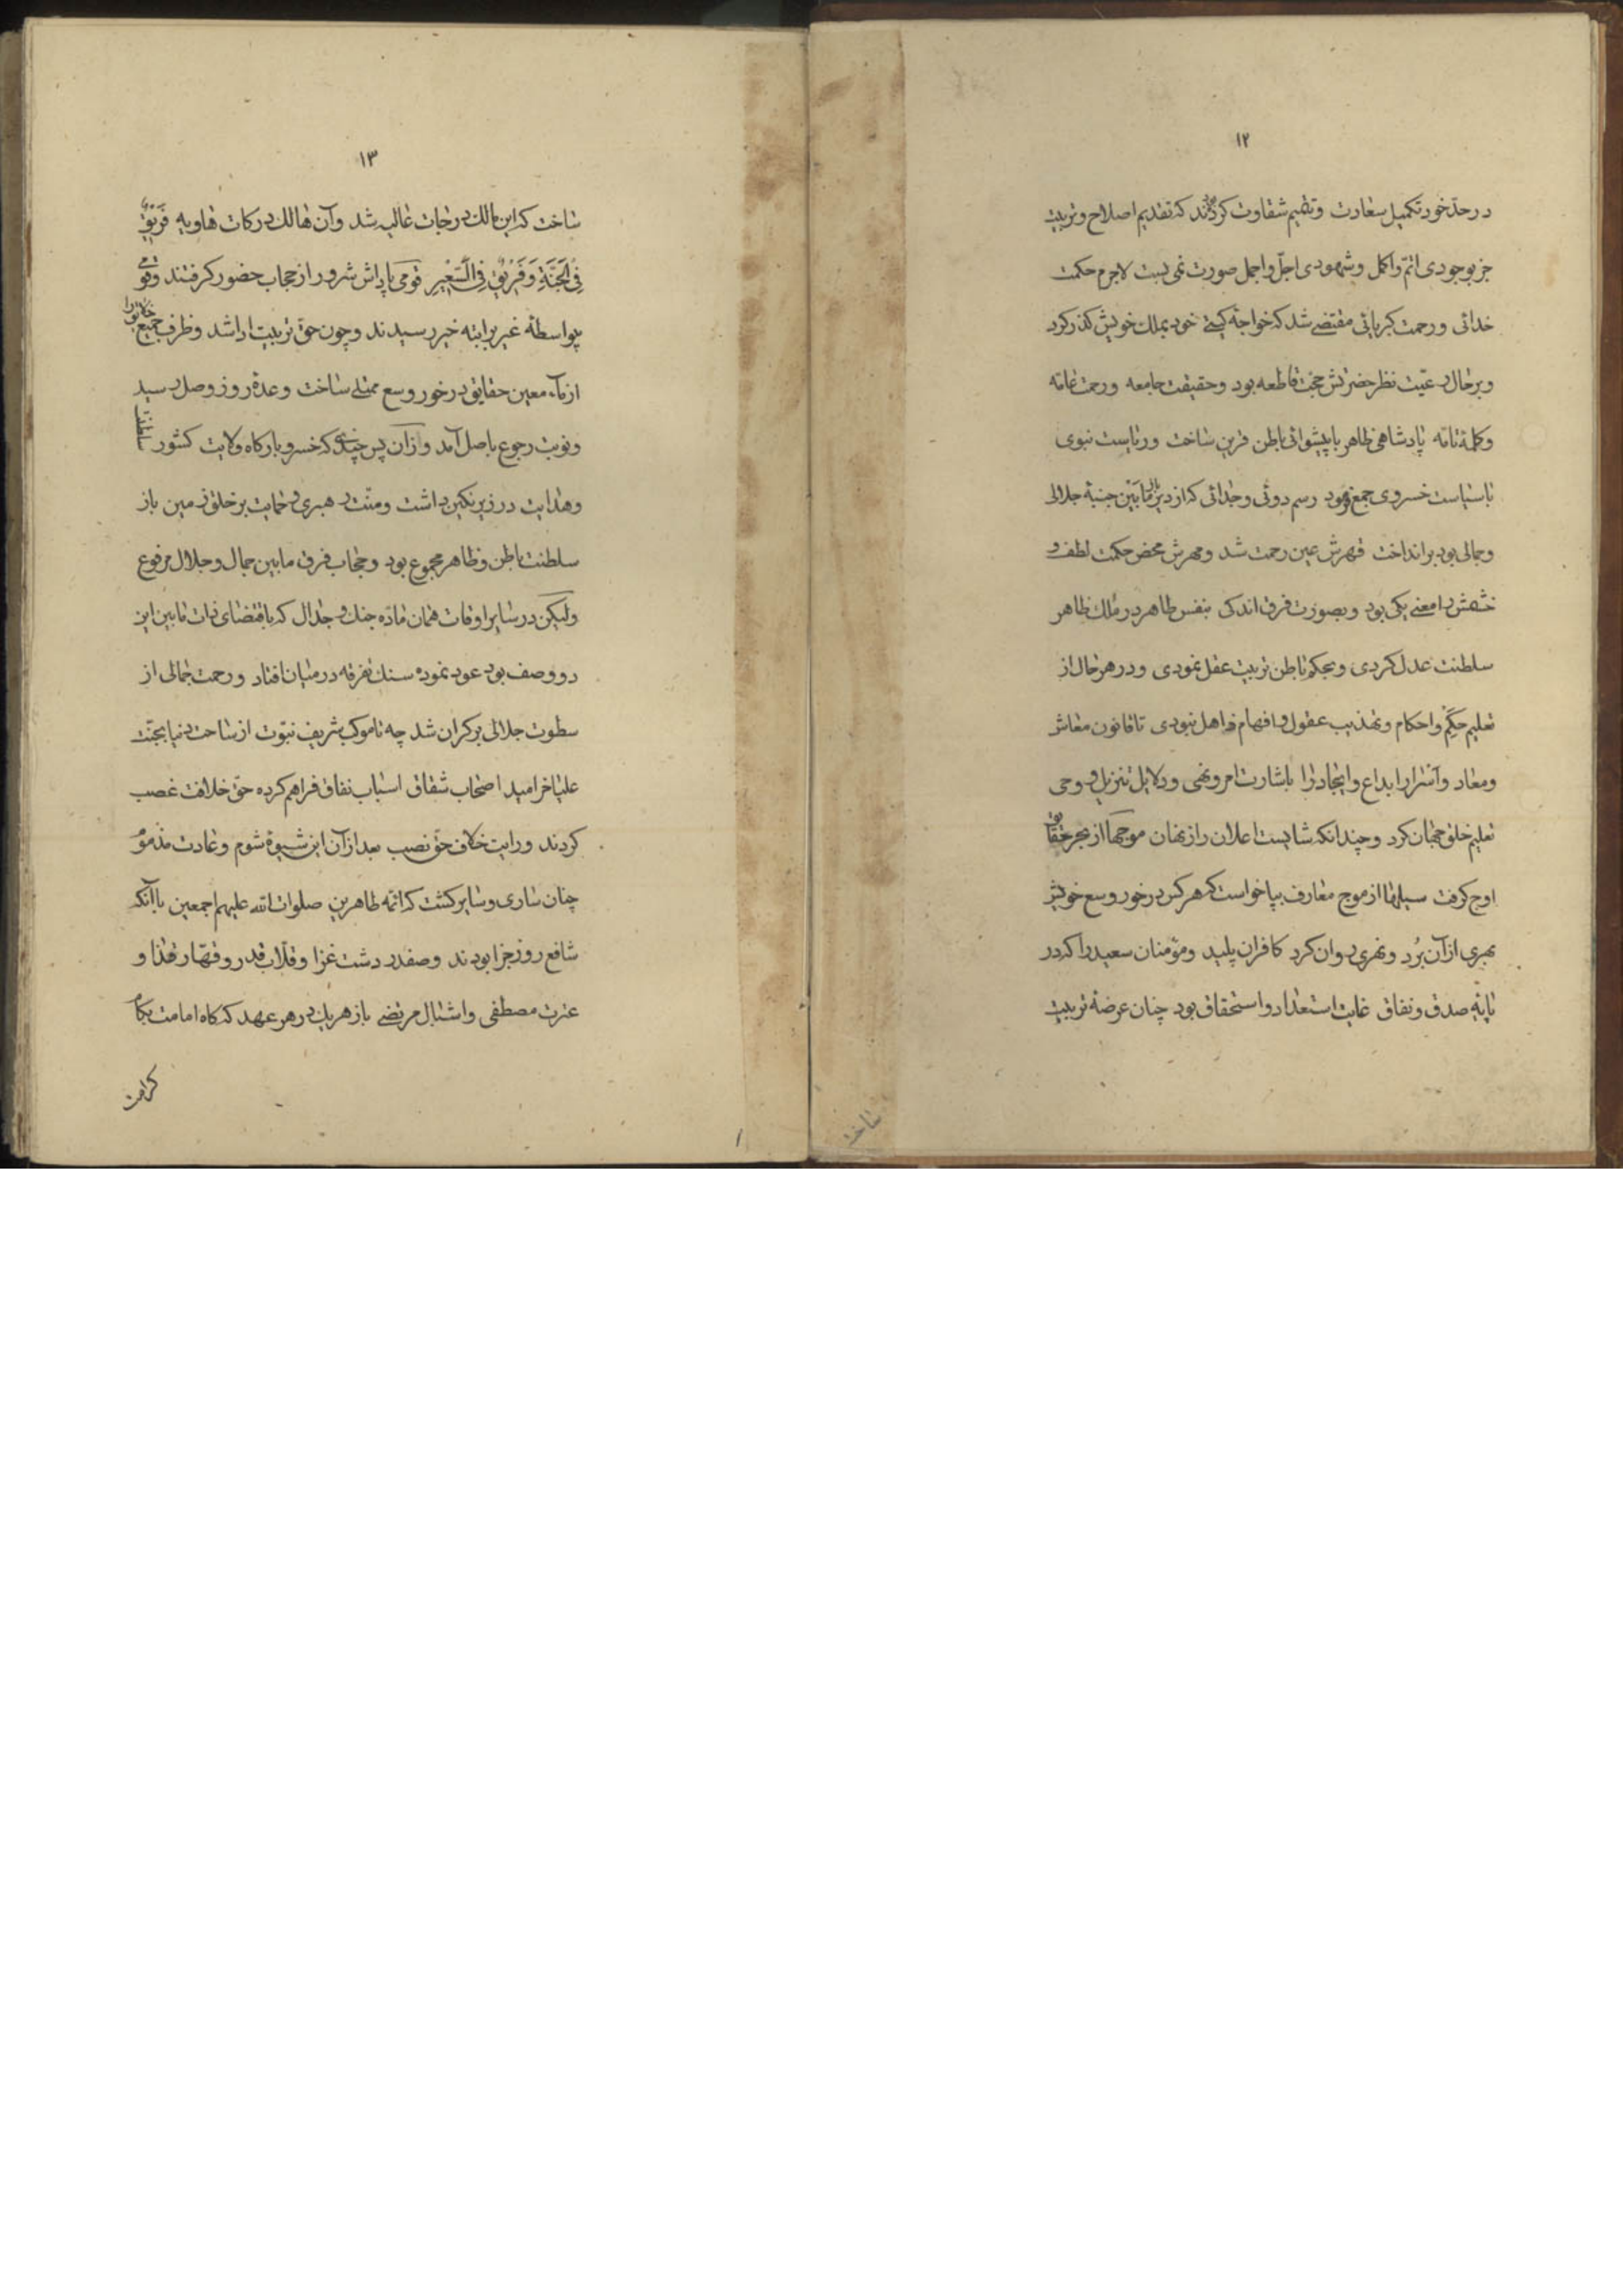 ۱۲
در حدّ خور تکمیل سعادت و تتمیم شقاوت کردند که تقدیم اصلاح و تربیت
جز بوجودی اتمّ و اکمل و شهودی اجلّ و اجمل صورت نمی بست لاجرم حکمت
خدائی و رحمت کبریائی مقتضی شد که خواجه کیتی خود بملک خویش کذر کرد
و بر حال رعیّت نظر حضرتش حجّت قاطعه بود و حقیقت جامعه و رحمت عامّه
و کلمة تامّه پادشاهی ظاهر با پیشوائی باطن قرین ساخت و ریاست نبوی
با سیاست خسروی جمع فرمود رسم دوئی و جدائی که از دیر باز مابین جنبهٔ جلالی
و جمالی بود برانداخت قهرش عین رحمت شد و مهرش محض حکمت لطف و
خشمش را معنی یکی بود و بصورت فرق اندکی بنفس طاهر در ملک ظاهر
سلطنت عدل کردی و بحکم باطن تربیت عقل نمودی و در هر حال از
تعلیم حکم و احکام و تهذیب عقول و افهام ذاهل نبودی تا قانون معاش
و معاد و آسرار ابداع و ایجاد را باشارت امر و نهی و دلایل تنزیل و وحی
تعلیم خلق جهان کرد و چندانکه شایست اعلان راز نهان موجها از بحر حقایق
اوج کرفت سیلها از موج معارف بپا خواست که هر کس در خور وسع خویش
بهری از آن بُرد و نهری روان کرد کافران پلید و مؤمنان سعید را که در
پایهٔ صدق و نفاق غایت استعداد و استحقاق بود چنان عرضهٔ تربیت
ساخت
۱۳
ساخت که این مالک درجات عالیه شد و آن هالک درکات هاویه فَریقٌ
فِی الجَنَّةِ وَ فَریقٌ فِی السَّعیرِ قومی پاداش شرور از حجاب حضور کرفتند و قومی
بواسطهٔ غیر برابته خیر رسیدند و چون حقّ تربیت ادا شد و ظرف جمیع خلایق را
از ماء معین حقایق در خور وسع ممتلی ساخت وعدهٔ روز وصل رسید
و نوبت رجوع باصل آمد و از آن پس چندی که خسرو بارکاه ولایت کشور سلطنت
و هدایت در زیر نکین داشت و منّت رهبری و حمایت بر خلق زمین باز
سلطنت باطن و ظاهر مجموع بود و حجاب فرق مابین جمال و جلال مرفوع
ولیکن در سایر اوقات همان مادّه جنک و جدال که باقتضای ذات مابین این
دو وصف بود عود نموده سنک تفرقه در میان افتاد و رحمت جمالی از
سطوت جلالی بر کران شد چه تا موکب شریف نبّوت از ساحت دنیا بجنّت
علیا خرامید اصحاب شقاق اسباب نفاق فراهم کرده حقّ خلافت غصب
کردند و رایت خلاف حقّ نصب بعد از آن این شیوهٔ شوم و عادت مذموم
چنان ساری و سایر کشت که ائمّه طاهرین صلوات الله علیهم اجمعین با آنکه
شافع روز جزا بودند و صفدر دشت غزا و قلّاب قدر و قهّار قضا و
عترت مصطفی و اشبال مرتضی باز هر یک در هر عهد که کاه امامت بکاه
کرامت